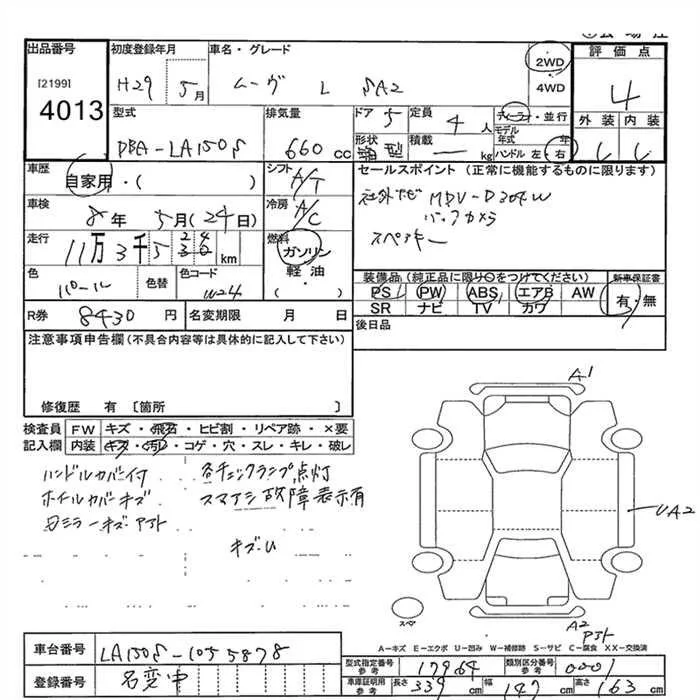 出品番号
[2199]
4013
初度登録年月
H29 5月
車名・グレード
ムーヴ L SA2
2WD
・
4WD
評価点
4
外装 内装
型式
DBA-LA150S
排気量
660 cc
ドア 5
定員 4 人
形状 箱型
積載 ー kg
ディーラー・並行
モデル
年式 年
ハンドル 左・右
車歴
自家用・( )
シフト
A/T
車検
8年 5月(24日)
冷房
A/C
走行
11万3千5 km
燃料
ガソリン
軽油・
( )
色
パール
色替
色コード
W24
R券 8430 円
名変期限 月 日
セールスポイント(正常に機能するものに限ります)
社外ナビ MDV-D304W
バックカメラ
スペアキー
装備品(純正品に限り○をつけてください)
PS PW ABS エアB AW
SR ナビ TV カワ
新車保証書
有・無
後日品
注意事項申告欄(不具合内容等は具体的に記入して下さい)
修復歴 有〔箇所 〕
検査員
記入欄
FW キズ・飛石・ヒビ割・リペア跡・×要
内装 キズ・汚れ・コゲ・穴・スレ・キレ・破レ
ハンドルカバー付
各チェックランプ点灯
ホイルカバーキズ
スマアシ故障表示有
キズU
A1
UA2
A2
スペア
A-キズ E-エクボ U-凹み W-補修跡 S-サビ C-腐食 XX-交換済
車台番号 LA150S-1055878
登録番号 名変中
型式指定番号
参考
17964
類別区分番号
参考
0001
車庫証明用
参考
長さ 339 cm
幅 147 cm
高さ 163 cm